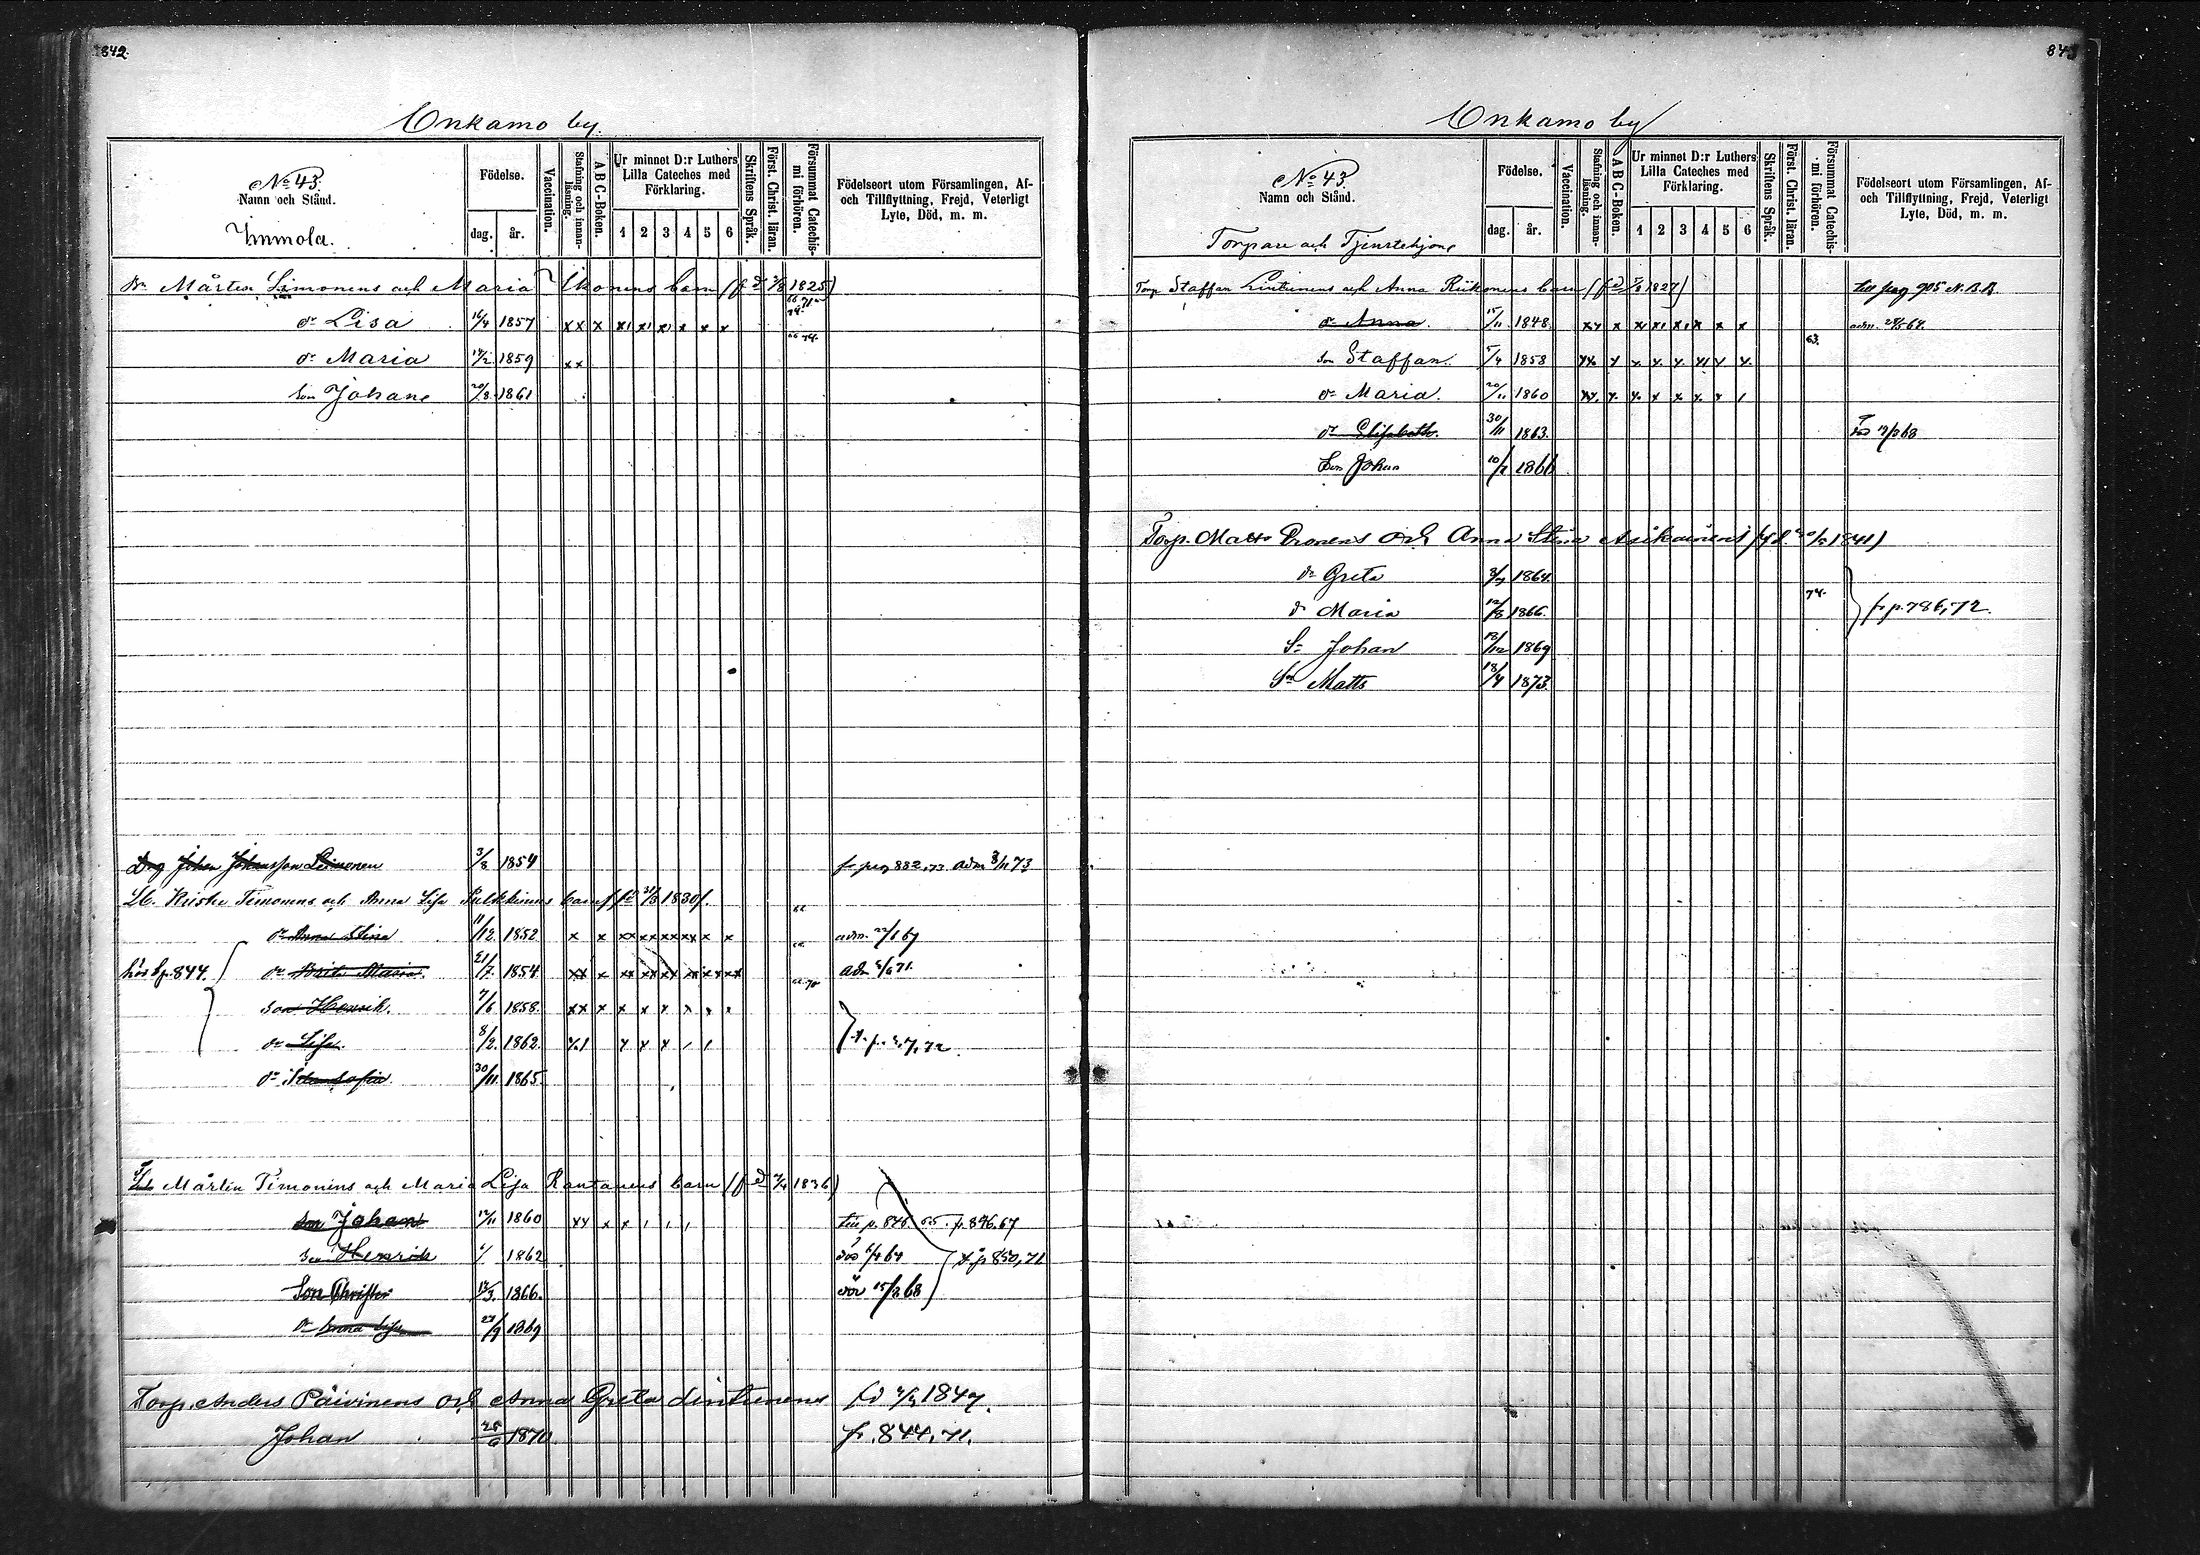 842
Onkamo by.
No 43.
Namn och Stånd.
Immola.
Födelse.
dag. år.
Vaccination.
Stafning och innanläsning.
A B C-Boken.
Ur minnet D:r Luthers Lilla Cateches med Förklaring.
1 2 3 4 5 6
Skriftens Språk.
Först. Christ. läran.
Försummat Catechismi förhören.
Födelseort utom Församlingen, Af- och Tillflyttning, Frejd, Veterligt Lyte, Död, m. m.
Mårten Simonens och Maria Ikonens barn (fd 1825)
dr Lisa 16/4 1857 xx x x x x x x x
dr Maria 1859 xx
Son Johan 20/8 1861
Drg Johan Johansson 3/8 1854 fr pag 882,73 adm 73
Timonens och Anna Lisa Pulkkinens barn fd 1830
dr Anna Stina 11/12 1852 x x xx xx xx xx x x adm. 67
hos S p. 844. dr Brita Maria 21/7 1854 adm 71.
son Henrik. 7/6 1858. xx x x x x x x x
dr Lisa. 8/2. 1862.
dr Sofia 30/11 1865
Mårten Timonens och Maria Lisa Rantanens barn (fd 1836)
son Johan 12/11 1860 xx x x till p. 846 65. fr 846.67
son Henrik 1862 död 64 t. p 850,71
Son Christer 13/3. 1866. död 15/3 68
dr Anna Lisa 1869
Torp. Anders Päivinens och Anna Greta Lintunens fd 1847.
Johan 25/6 1870 fr. 844.71.
Onkamo by
No 43.
Namn och Stånd.
Torpare och Tjenstehjon
Födelse.
dag. år.
Vaccination.
Stafning och innanläsning.
A B C-Boken.
Ur minnet D:r Luthers Lilla Cateches med Förklaring.
1 2 3 4 5 6
Skriftens Språk.
Först. Christ. läran.
Försummat Catechismi förhören.
Födelseort utom Församlingen, Af- och Tillflyttning, Frejd, Veterligt Lyte, Död, m. m.
Torp Staffan Lintunens och Anna Riikonens barn (fd 1827) till pag 905 N.B.
dr Anna. 15/11 1848 adm. 64.
63.
son Staffan. 5/4 1858
dr Maria. 20/11 1860
dr Elisabeth. 30/11 1863. död 68
Son Johan 1866
Torp. Matts och Anna Stina Asikainens (fd. 1841)
dr Greta 1864.
74.
dr Maria 12/8 1866. fr p. 786,72.
Sn Johan 13/12 1869
Sn Matts 18/4 1873.